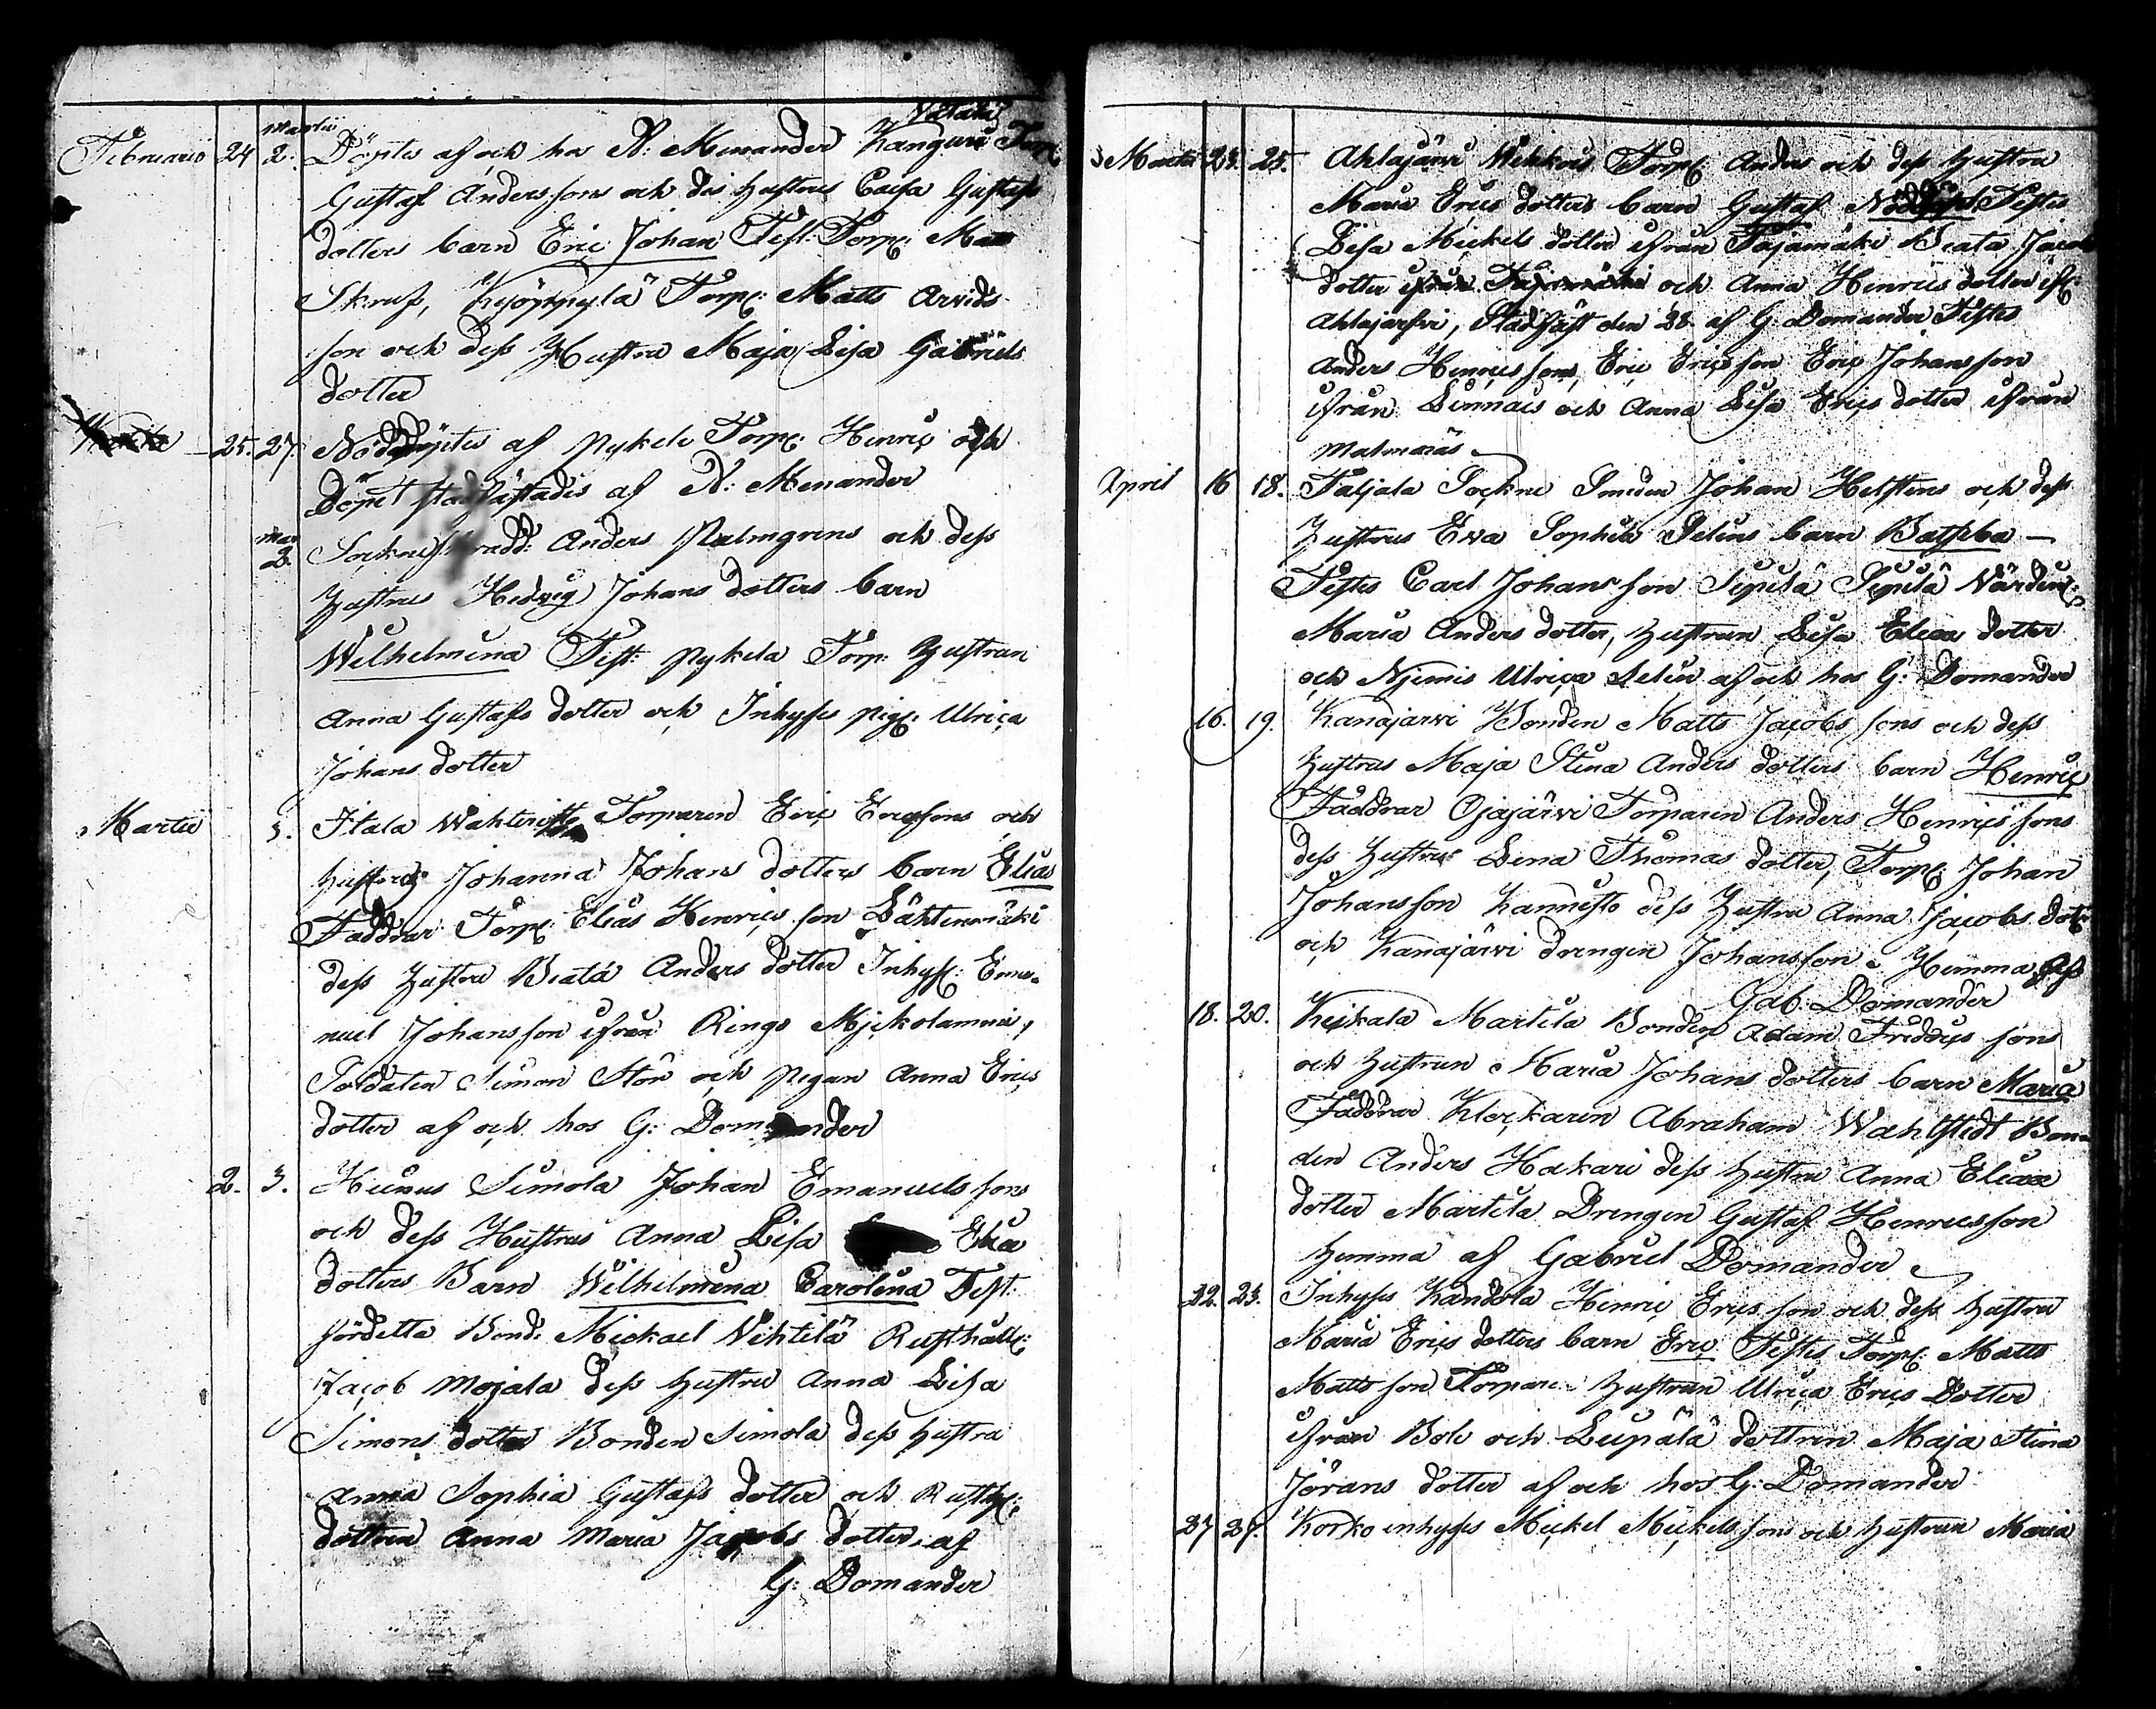 Martii
Februarii 24 2. Döptes af och hos N: Menander Kanguri Torp:
Gustaf Anderssons och des hustrus Caisa Gustafs
dotters barn Eric Johan Test: Torp: Matts
Skruf, Kyöppylä Torp: Matts Arvids
son och dess Hustru Maja Lisa Gabriels
dotter
25. 27. Nöddöptes af Pykele Torp: Henric och
Döpet stadfästades af N: Menander
Mar 2. Sockne Anders Palmgrens och dess
hustrus Hedvig Johans dotters barn
Wilhelmina Test: Pykela Torp: hustrun
Anna Gustafs dotter och Inhyses pig: Ulrica
Johans dotter
Martii 3. Itala Torparen Eric Ericssons och
hustrus Johanna Johans dotters barn Elias
Faddrar Torp: Elias Henrics son Lähtenmäki
dess hustru Beata Anders dotter Inhys: Ema-
nuel Johansson ifrån Ringo
Soldaten Simon Stor och pigan Anna Erics
dotter af och hos G: Domander
2. 3. Simola Johan Emanuels sons
och dess Hustrus Anna Lisa Elia
dotters Barn Wilhelmina Carolina Test:
fördetta Bond: Mickael Vihtilä Rusthåll:
Jacob Mojala dess hustru Anna Lisa
Simons dotter Bonden Simola dess hustra
Anna Sophia Gustafs dotter och Rusth:
dottren Anna Maria Jacobs dotter af
G: Domander
Martii 23. 25. Ahlajärvi Torp: Anders och dess hustru
Maria Erics dotters barn Gustaf Testes
Lisa Mickels dotter ifrån Tajamäki Beata Jacobs
dotter ifrån Tajamäki och Anna Henrics dotter ifr:
Ahlajärfvi, Stadfäst den 28 af G: Domander Testes
Anders Henrics son, Eric Ericsson Eric Johansson
ifrån Linnais och Anna Lisa Erics dotter ifrån
Malmnäs
April 16 18. Taljala Sockne Smeden Johan Helstens och dess
hustrus Eva Sophia Selins barn Batseba
Testes Carl Johansson Sipilä Sipilä Värdin:
Maria Anders dotter, hustrun Lisa Elias dotter
och Ulrica Selin af och hos G: Domander
16. 19. Kanajärvi Bonden Matts Jacobs sons och dess
hustrus Maja Stina Anders dotters barn Henric
Faddrar Ojajärvi Torparen Anders Henrics sons
dess hustru Lena Thomas dotter, Torp: Johan
Johansson Kannisto dess hustru Anna Jacobs dot:
och Kanajärvi drengen Johansson Hemma af
Gab: Domander
18. 20. Keikala Martila Bonden Adam Fredrics sons
och hustrun Maria Johans dotters barn Maria
Faddrar Klockaren Abraham Wahlstedt Bon-
den Anders Hakari dess hustru Anna Elias
dotter Martila Drengen Gustaf Henricsson
hemma af Gabriel Domander
22. 23. Inhyses Kandola Henric Erics son och dess hustru
Maria Erics dotters barn Eric Testes Torp: Matts
Matts son Torpare hustrun Ulrica Erics Dotter
ifrån Bole och Leipälä dottren Maja Stina
Jörans dotter af och hos G: Domander
27 29. Korko inhyses Mickel Mickels sons och hustrun Maria